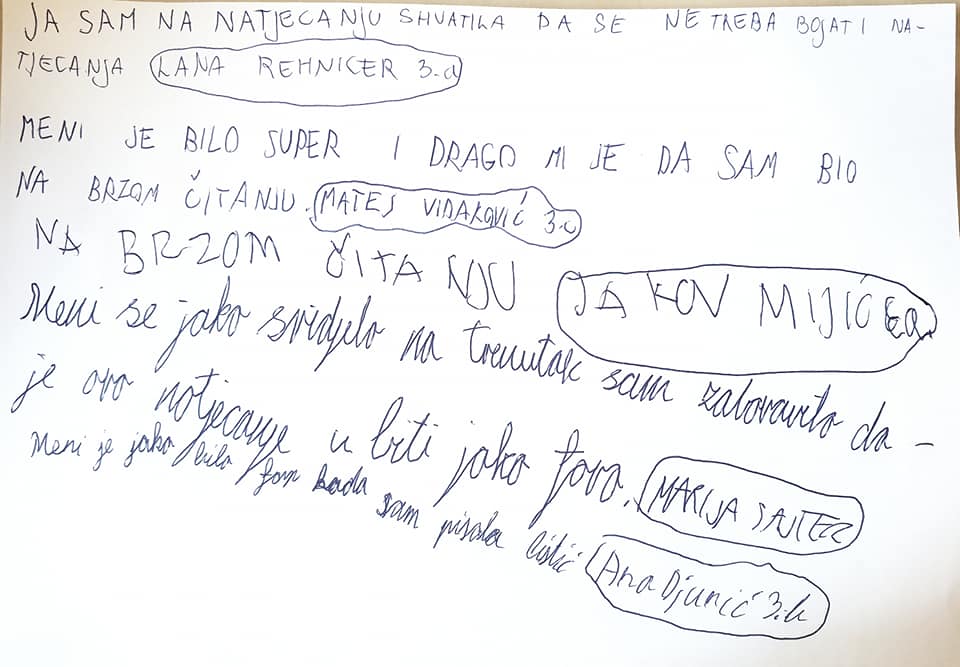 JA SAM NA NATJECANJU SHVATILA DA SE NE TREBA BOJATI NA-
TJECANJA LANA REHNICER 3.a
MENI JE BILO SUPER I DRAGO MI JE DA SAM BIO
NA BRZOM ČITANJU. MATEJ VIDAKOVIĆ 3.c
NA BRZOM ČITANJU JAKOV MIJIĆ
Meni se jako svidjelo na trenutak sam zaboravila da -
je ovo natjecanje u biti jako fora. MARIJA SAJTER
Meni je jako bilo fora kada sam pisala listić Ana Djunić 3.b